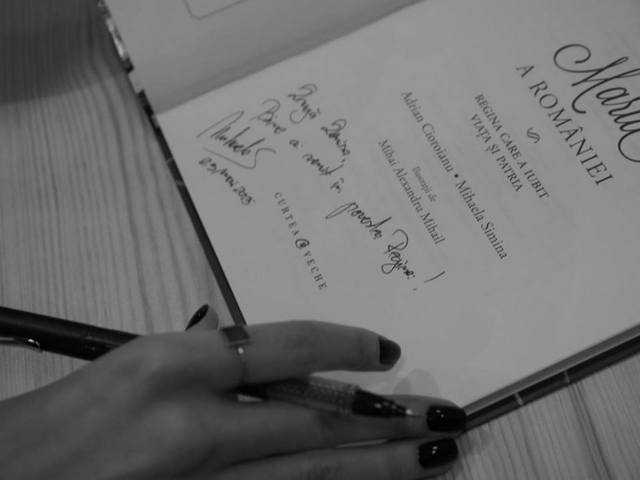 Maria
A ROMÂNIEI
REGINA CARE A IUBIT
VIAȚA ȘI PATRIA
Adrian Cioroianu • Mihaela Simina
Ilustrații de
Mihai Alexandru Mihail
CURTEA VECHE
Bine a venit în povestea Reginei!
MihaelaS